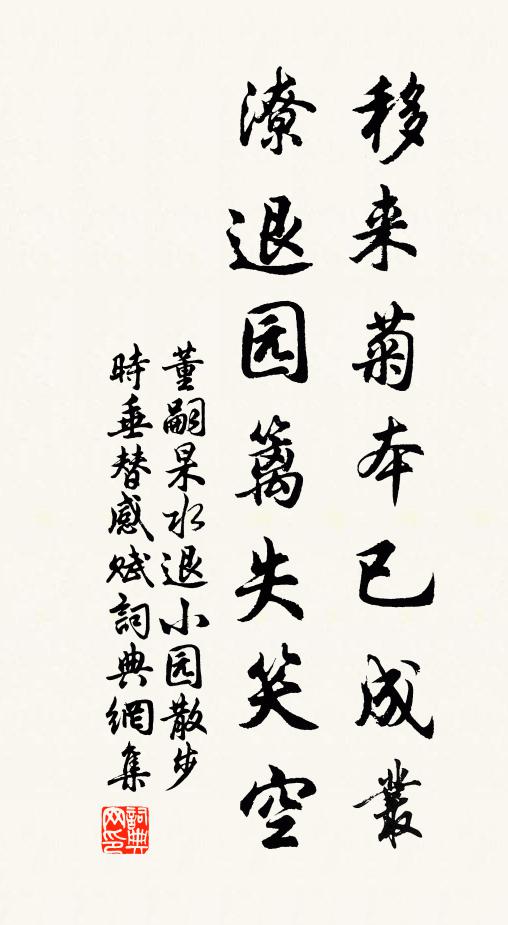 移来菊本已成叢
潦退园籬失笑空
董嗣杲水退小园散步
時垂替感赋詞典網集
詞典网印